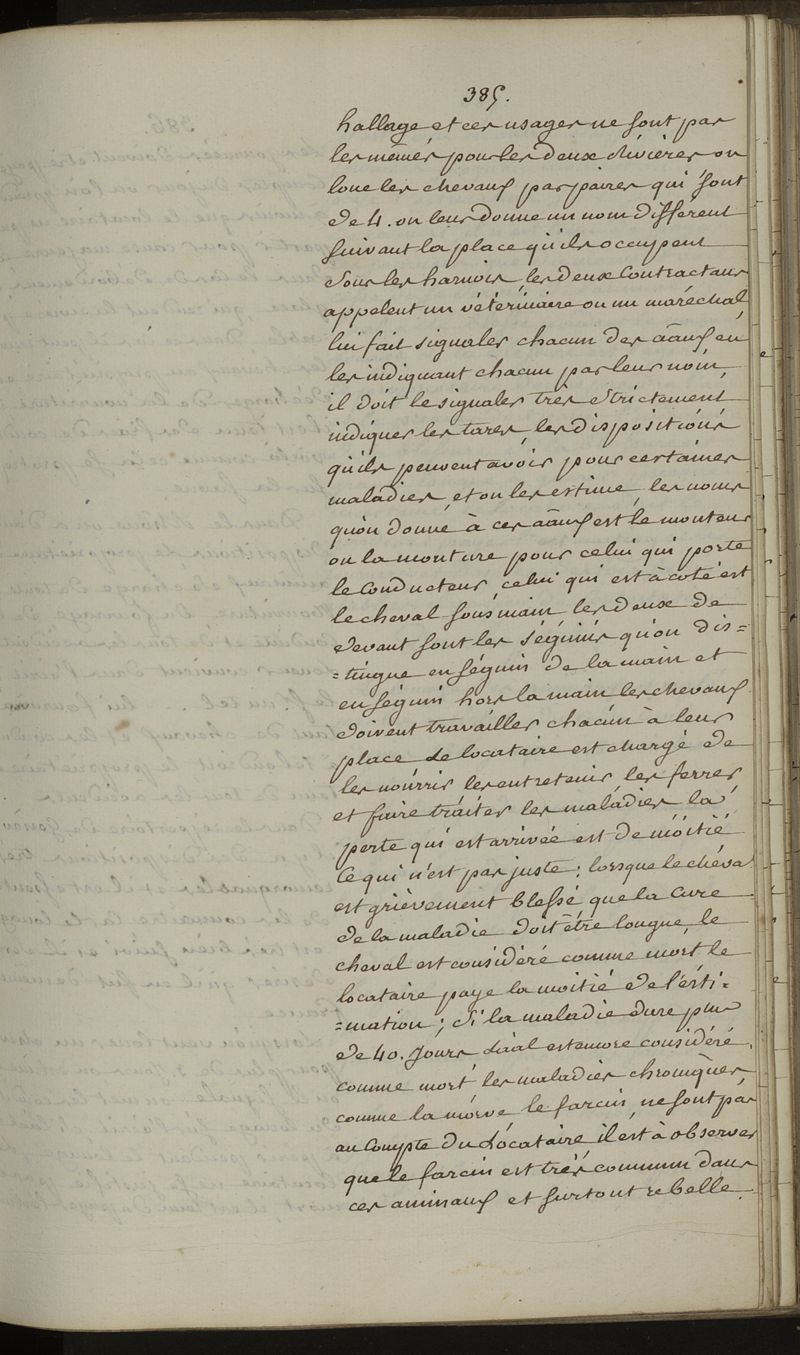 385.
hallage et ces usages ne sont pas
les mêmes pour les deux Rivières on
loue les chevaux par paires qui sont
de 4. on leur donne un nom différent
suivant la place qu'ils occupent
sous les harnois, les deux Contractans
appelent un véterinaire ou un maréchal
lui fait signaler chacun des aãux en
les indiquant chacun par leur nom,
il doit le signaler très strictement
indiquer les tares, les dispositions
qu'ils peuvent avoir pour certaines
maladies, et on les estime, les noms
qu'on donne à ces aãux est le monteur
ou la monture pour celui qui porte
le Conducteur, celui qui est à coté est
le cheval sous main, les deux de
devant sont les séguins qu'on dis=
=tingue en séguin de la main et
en séguin hors la main les chevaux
doivent travailler chacun à leur
place le locataire est chargé de
les nourrir les entretenir les ferrer
et faire traiter les maladies la
perte qui est arrivée est de moitié
Ce qui n'est pas juste; lorsque le cheva
est grièvement blessé que la Cure
de la maladie doit être longue, le
cheval est considéré comme mort le
locataire paye la moitié de l'esti=
=mation; Si la maladie dure plus
de 40. Jours l'aãl est encore considéré
comme mort les maladies chroniques
comme la morve le farcin, ne sont pas
au Compte du Locataire, il est à observer
que le farcin est très commun dans
ces animaux et surtout rebelle